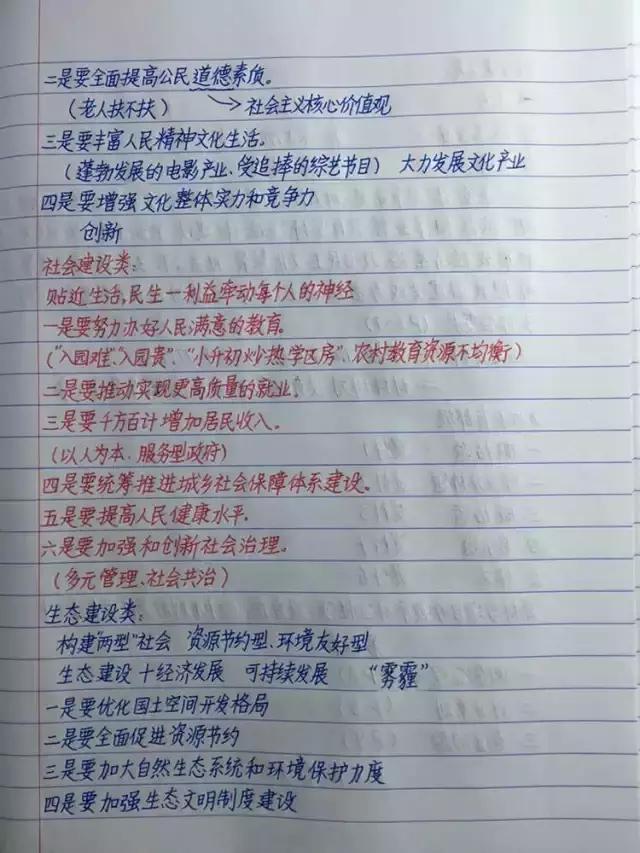 二是要全面提高公民道德素质。
(老人扶不扶) → 社会主义核心价值观
三是要丰富人民精神文化生活。
(蓬勃发展的电影产业、受追捧的综艺节目) 大力发展文化产业
四是要增强文化整体实力和竞争力
创新
社会建设类:
贴近生活,民生—利益牵动每个人的神经
一是要努力办好人民满意的教育。
("入园难"、"入园贵"、"小升初炒热学区房"、农村教育资源不均衡)
二是要推动实现更高质量的就业。
三是要千方百计增加居民收入。
(以人为本、服务型政府)
四是要统筹推进城乡社会保障体系建设。
五是要提高人民健康水平.
六是要加强和创新社会治理。
(多元管理、社会共治)
生态建设类:
构建"两型"社会 资源节约型、环境友好型
生态建设十经济发展 可持续发展 "雾霾"
一是要优化国土空间开发格局
二是要全面促进资源节约
三是要加大自然生态系统和环境保护力度
四是要加强生态文明制度建设